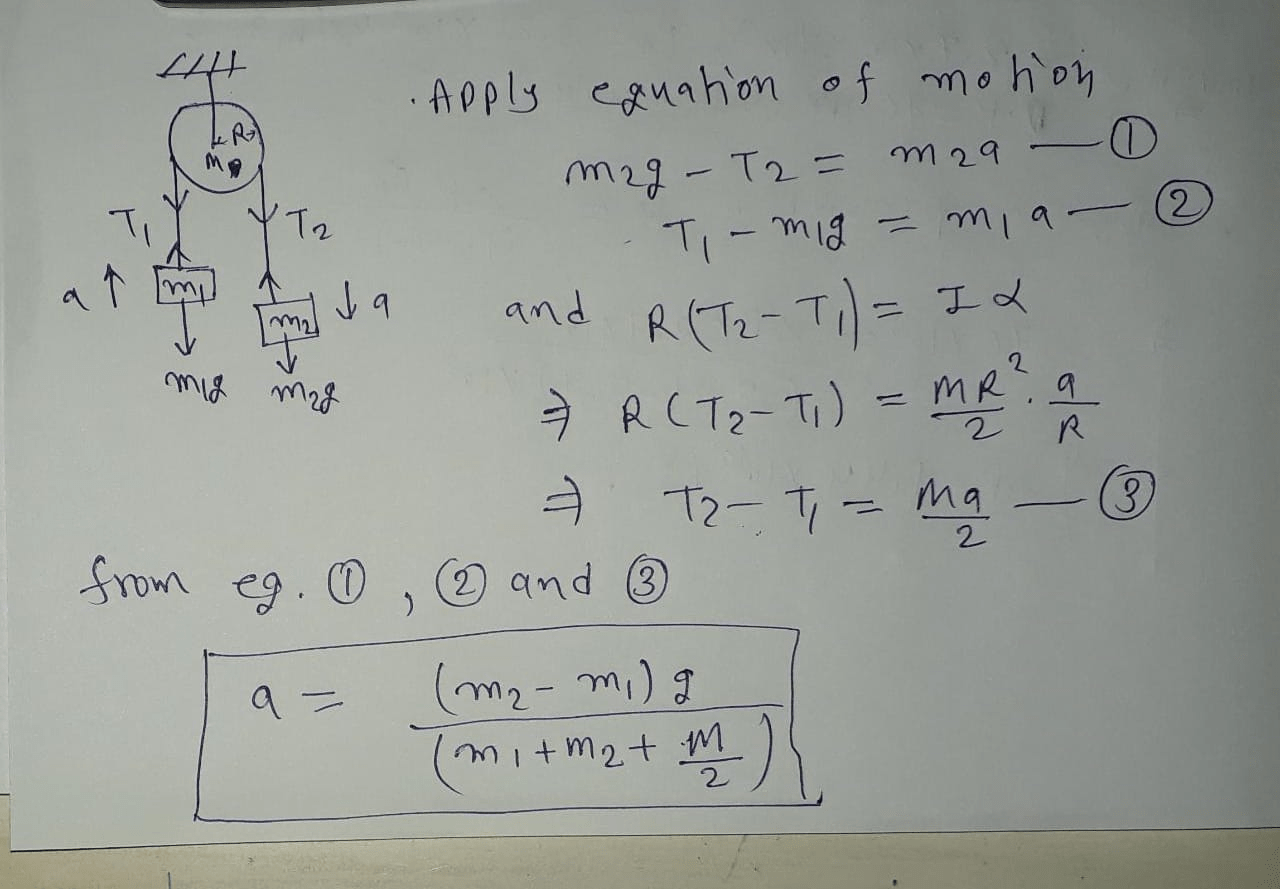 R
M
T1 T2
a ↑ m1 m2 ↓ a
m1g m2g
. Apply equation of motion
m2g - T2 = m2a — ①
T1 - m1g = m1a — ②
and R(T2 - T1) = Iα
⇒ R(T2 - T1) = MR²/2 . a/R
⇒ T2 - T1 = Ma/2 — ③
from eq. ① , ② and ③
a = (m2 - m1)g / (m1 + m2 + M/2)